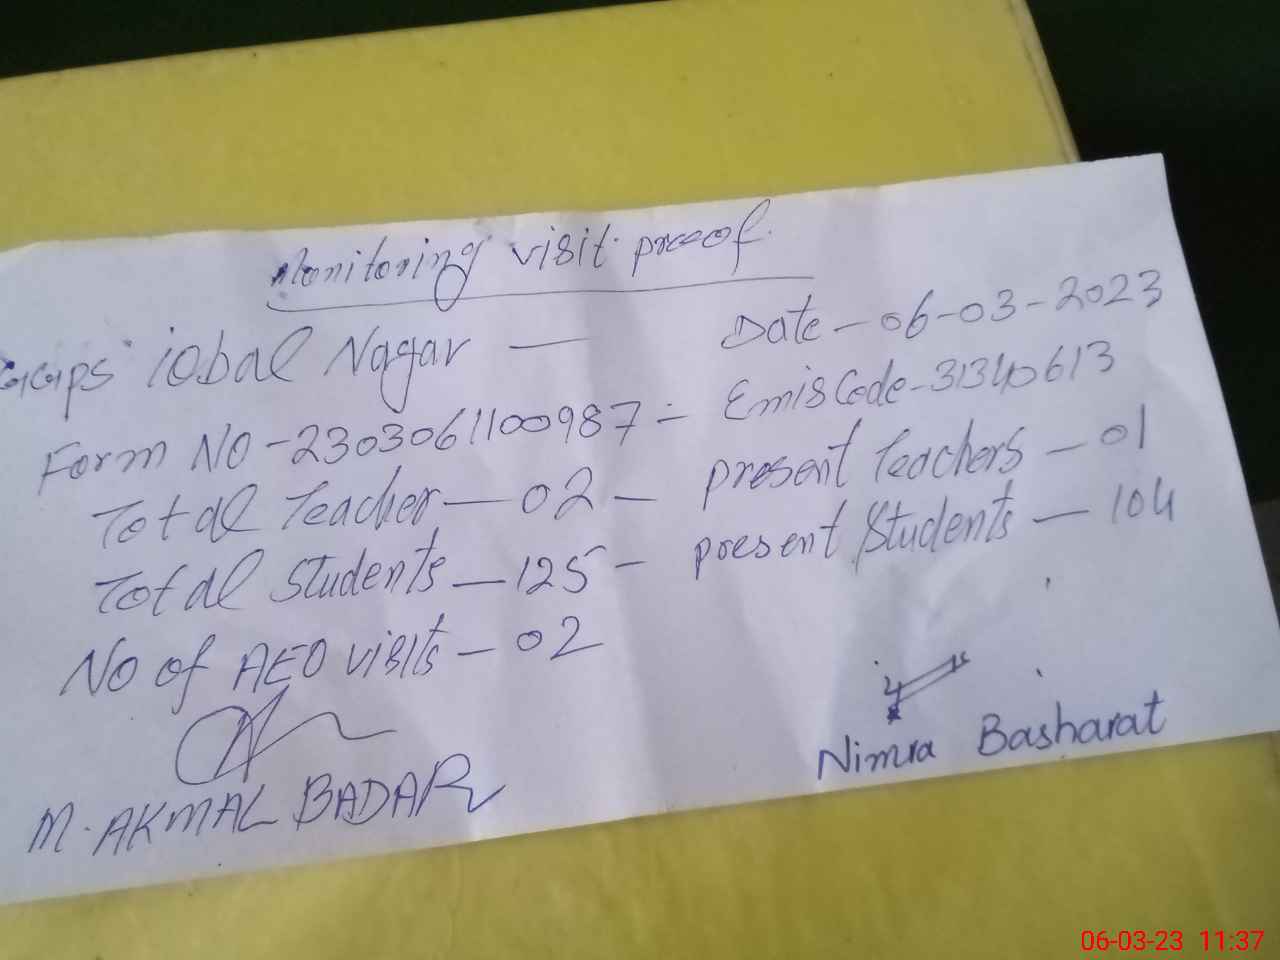 Monitoring visit proof.
GGPS iqbal Nagar — Date - 06-03-2023
Form No - 2303061100987 - Emis Code - 31340613
Total Teacher — 02 — present Teachers — 01
Total Students — 125 — present Students — 104
No of AEO visits - 02
M. AKMAL BADAR
Nimra Basharat
06-03-23 11:37